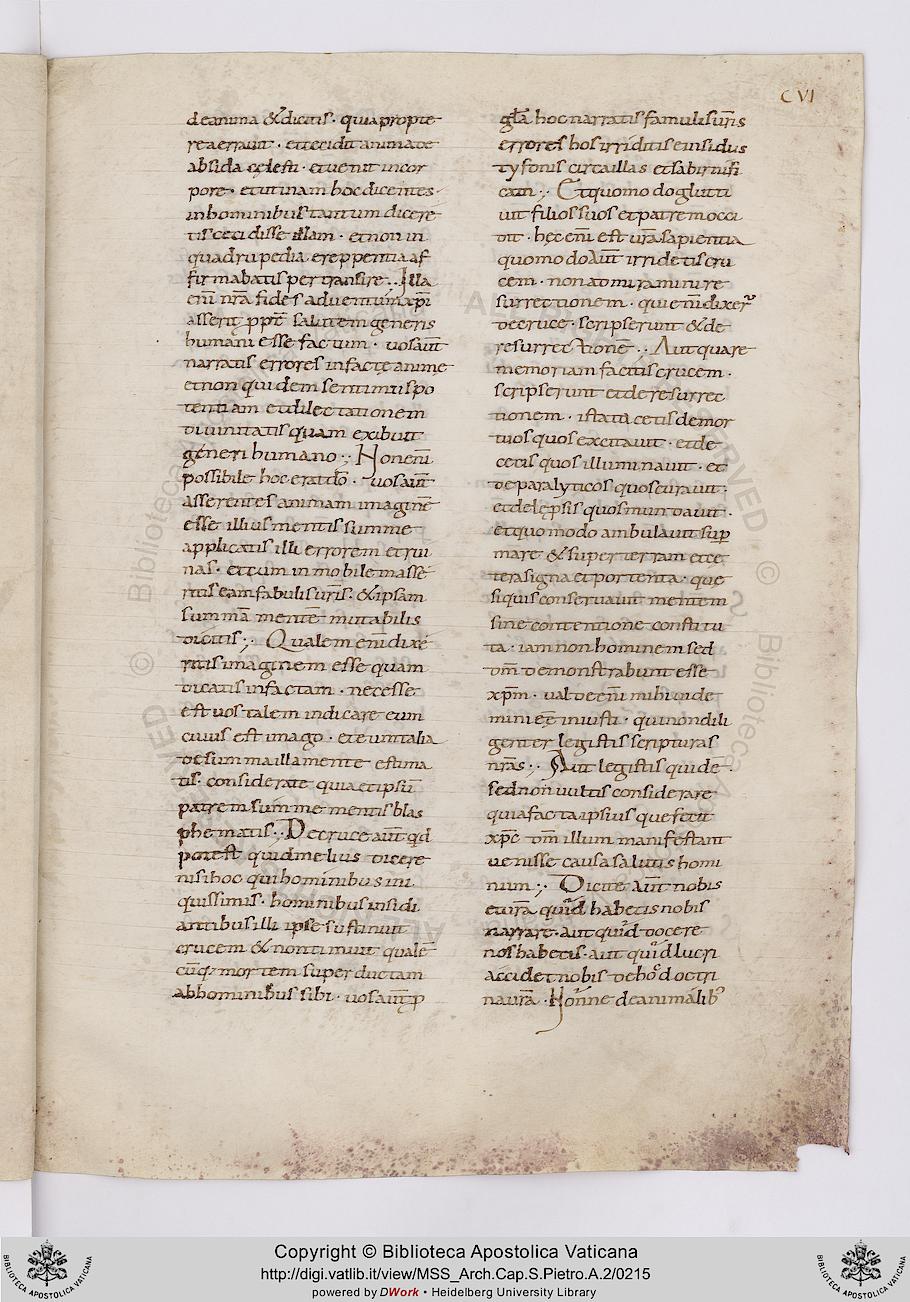 CVI
deanima &dicitis · quia propte
rea erravit · et cecidit anima de
absida cęlesti · et venit in cor
pore · et utinam hoc dicentes ·
in hominibus tantum dicere
tis cecidisse illam · et non in
quadrupedia et reppentia af
firmabatis per transire ·. Illa
eni nra fides adventum xpi
asserit ppt salutem generis
humani esse factum · vos aut
narratis errores infacte anime
et non quidem sentimus po
tentiam et dilectationem
divinitatis quam exibuit
generi humano ·,· Non eni
possibile hoc erat do · vos aut
asserentes animam imagine
esse illius mentis summe
applicatis illi errorem et rui
nas · et cum inmobile masse
ritis eam fabulis uris · & ipsam
summa mente mutabilis
dicitis ;· Qualem eni dixe
ritis imaginem esse quam
dicatis infactam · necesse
est vos talem indicare eum
cuius est imago · et eum talia
de summa illa mente estima
tis · considerate quia et ipsu
patrem summe mentis blas
phematis ·,· De cruce aut qd
potest quid melius dicere
nisi hoc qui hominibus ini
quissimis · hominibus insidi
antibus illi ipse sustinuit
crucem & non timuit quale
cuq; mortem super ductam
ab hominibus sibi · vos aut p
gla hoc narratis famuli suris
errores hos irriditis et insidus
tyfonis circa illas et labirinti
cam ·,· Et quomodo glutti
vit filios suos et patrem occi
dit · hec eni est ura sapientia
quomodo aut irridetis cru
cem · non atomi ramini re
surrectionem · qui eni dixer
de cruce · scripserunt & de
resurrectione ·,· Aut quare
memoriam facitis crucem ·
scripserunt et de resurrec
tionem · ista tacetis de mor
tuos quos excitavit · et de
cecis quos illuminavit · et
de paralyticos quos curavit ·
et de lepsis quos mundavit ·
et quomodo ambulavit sup
mare & super terram et ce
tera signa et portenta · que
si quis conservavit mentem
sine contentione constitu
ta · iam non hominem sed
dm demonstrabunt esse
xpm · valde eni mihi vide
mini ee iniusti · qui non dili
genter legistis scripturas
nras ·,· Aut legistis quide ·
sed non vultis considerare
quia facta ipsius que fecit
xpc dm illum manifestant
venisse causa salutis homi
nium ;· Dicite aut nobis
et ura quid habetis nobis
narrare · aut quid docere
nos habetis · aut quid lucri
accidet nobis de hoc doctri
na ura · Nonne de animalib
Copyright © Biblioteca Apostolica Vaticana
http://digi.vatlib.it/view/MSS_Arch.Cap.S.Pietro.A.2/0215
powered by DWork · Heidelberg University Library
BIBLIOTECA APOSTOLICA VATICANA
BIBLIOTECA APOSTOLICA VATICANA